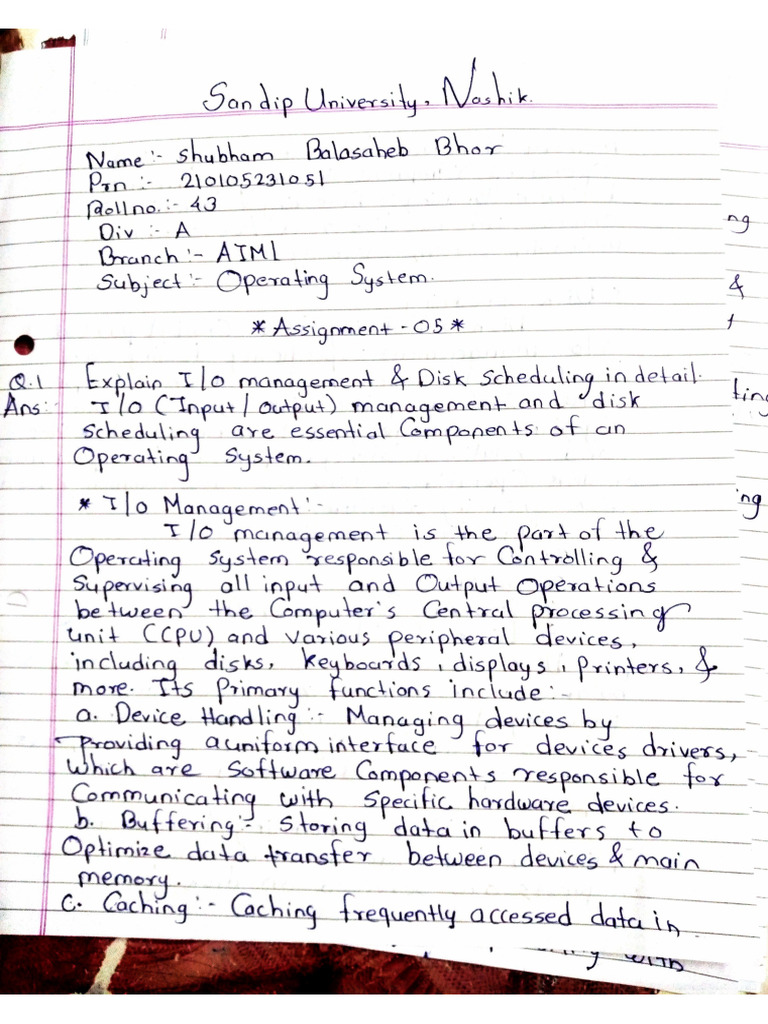 Sandip University, Nashik.
Name :- Shubham Balasaheb Bhor
Prn :- 210105231051
Rollno. :- 43
Div :- A
Branch :- AIML
Subject :- Operating System.
* Assignment - 05 *
Q.1 Explain I/o management & Disk scheduling in detail.
Ans:- I/o (Input/output) management and disk
scheduling are essential Components of an
Operating System.
* I/o Management :-
I/o management is the part of the
Operating system responsible for Controlling &
Supervising all input and Output Operations
between the Computer's Central processing
unit (CPU) and various peripheral devices,
including disks, keyboards, displays, printers, &
more. Its Primary functions include :-
a. Device Handling :- Managing devices by
providing a uniform interface for devices drivers,
which are Software Components responsible for
Communicating with specific hardware devices.
b. Buffering :- storing data in buffers to
Optimize data transfer between devices & main
memory.
c. Caching :- Caching frequently accessed data in
ng
&
ting
ing
with